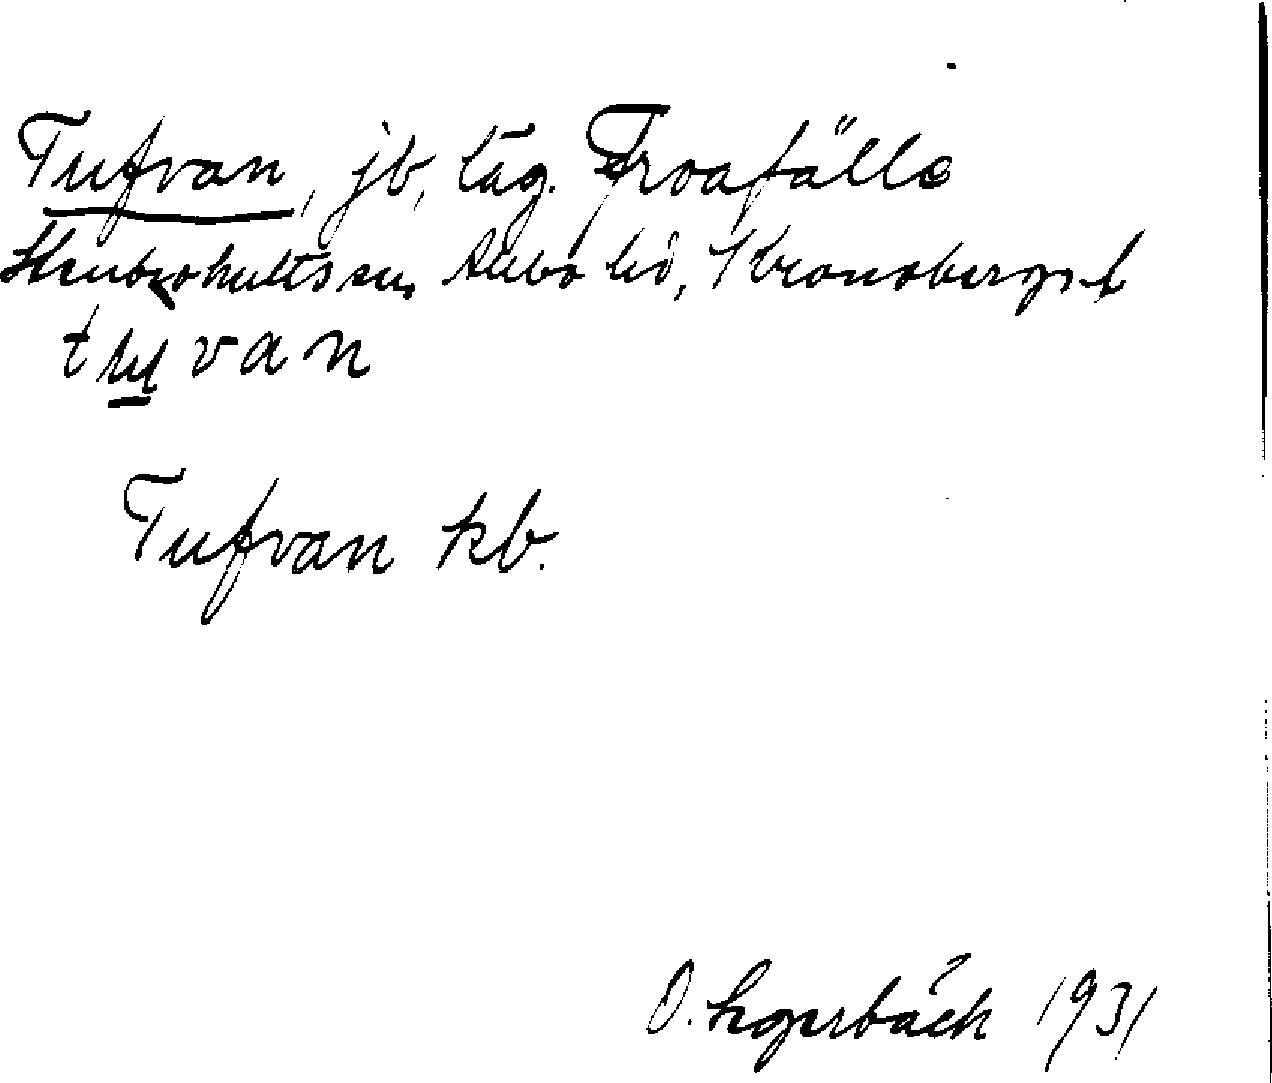 Tufvan, jb, läg. Froafälle
Stenbrohults sn, Allbo hd, Kronobergs l
van
Tufvan kb.
O. Lgerbäck 1931